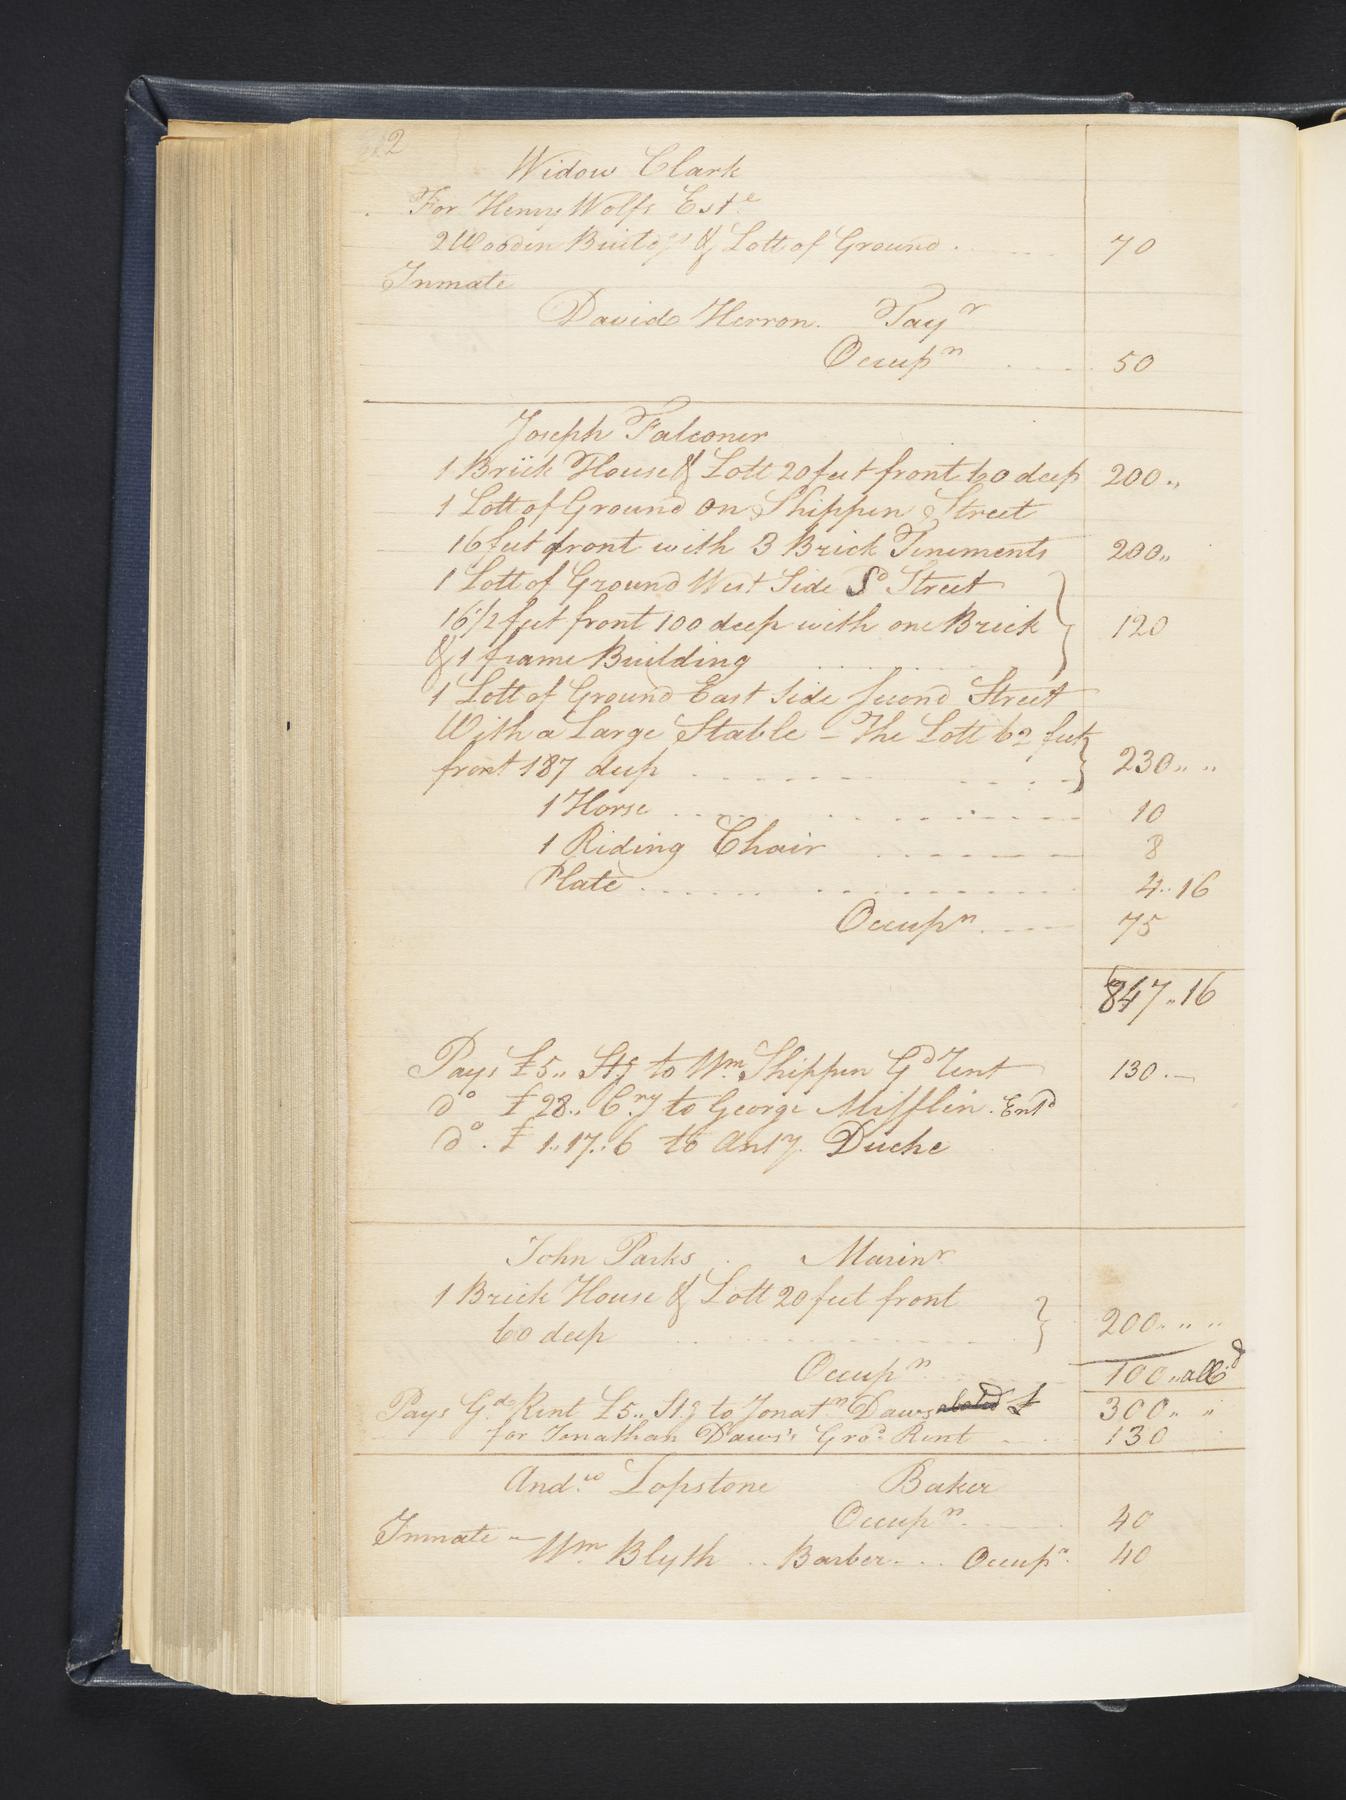 2
Widow Clark
For Henry Wolfs Est.e
2 Wooden Build.gs & Lott of Ground . 70
Inmate
David Herron. Tayr
Occupn 50
Joseph Falconer
1 Brick House & Lott 20 feet front 60 deep 200 "
1 Lott of Ground on Shippen Street
16 feet front with 3 Brick Tinements 200 "
1 Lott of Ground West Side Sd Street
16 1/2 feet front 100 deep with one Brick 120
& 1 frame Building
1 Lott of Ground East Side Second Street
With a Large Stable – The Lott 62 feet
front 187 deep 230 " "
1 Horse 10
1 Riding Chair 8
Plate 4 .. 16
Occupn 75
847 .. 16
Pays £5 .. Stg to Wm Shippen Gd Rent 130 . –
do £28 .. Cny to George Mifflin . Entd
do . £ 1 .. 17 .. 6 to Anty. Duche
John Parks . Marinr
1 Brick House & Lott 20 feet front
60 deep 200 " " "
Occupn 100 .. alld
Pays Gd Rent £5 .. Stg to Jonatn Daws 300 " "
for Jonathan Daws's Grod Rent 130
And.w Lopstone Baker
Occupn 40
Inmate – Wm Blyth .. Barber . . . Occupn 40